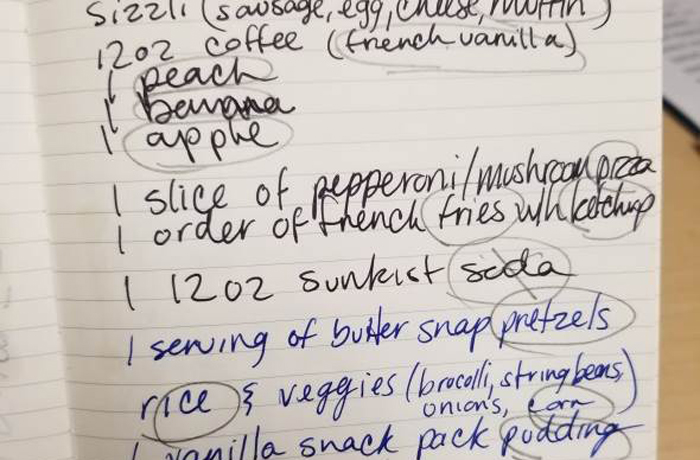 Sizzli (sausage, egg, cheese, muffin)
12oz coffee (french vanilla)
1 peach
1 banana
1 apple
1 slice of pepperoni/mushroom pizza
1 order of french fries wh ketchup
1 12oz sunkist soda
1 serving of butter snap pretzels
rice & veggies (brocolli, string beans,
onions, corn)
1 vanilla snack pack pudding